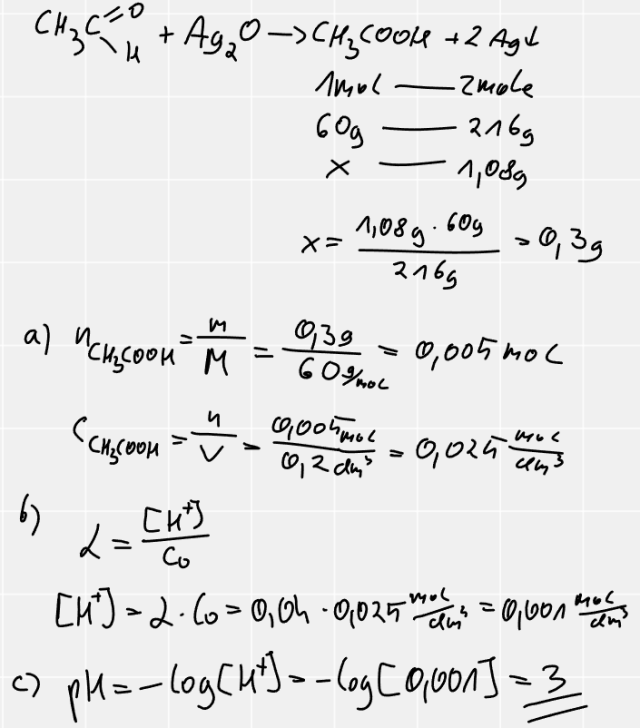 CH₃C=O H + Ag₂O → CH₃COOH + 2Ag↓
1mol — 2mole
60g — 216g
x — 1,08g
x = 1,08g · 60g / 216g = 0,3g
a) n CH₃COOH = m / M = 0,3g / 60 g/mol = 0,005 mol
C CH₃COOH = n / V = 0,005 mol / 0,2 dm³ = 0,025 mol/dm³
b) α = [H⁺] / C₀
[H⁺] = α · C₀ = 0,04 · 0,025 mol/dm³ = 0,001 mol/dm³
c) pH = -log[H⁺] = -log[0,001] = 3